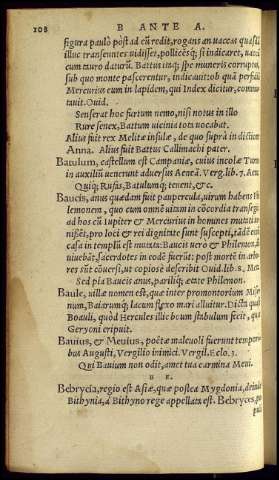 108 B ANTE A.
figura paulò pòst ad eũ redit, rogans an uaccas quasdã
illuc transeuntes uidisset, pollicẽsq́; si indicaret, uaccã
cum tauro daturũ. Battus itaq; spe muneris corruptus,
sub quo monte pascerentur, indicauit: ob quã perfidiã
Mercurius eum in lapidem, qui Index dicitur, commu
tauit. Ouid.
Senserat hoc furtum nemo, nisi notus in illo
Rure senex, Battum uicinia tota uocabat.
Alius fuit rex Melitæ insulæ, de quo suprà in dictione
Anna. Alius fuit Battus Callimachi pater.
Batulum, castellum est Campaniæ, cuius incolæ Turno
in auxilium uenerunt aduersus Aeneã. Verg. lib. 7. Aen.
Quiq; Rufas, Batulumq; tenent, &c.
Baucis, anus quædam fuit paupercula, uirum habens Phi
lemonem, quo cum omnẽ uitam in cõcordia transegit
ad hos cũ Iupiter & Mercurius in homines mutati ue
nissẽt, pro loci & rei dignitate sunt suscepti, tãdẽ eorũ
casa in templũ est mutata: Baucis uerò & Philemon, dũ
uiuebãt, sacerdotes in eodẽ fuerũt: post mortẽ in arbo
res sũt cõuersi, ut copiosè describit Ouid. lib. 8. Met.
Sed pia Baucis anus, pariliq́; ætate Philemon.
Baule, uillæ nomen est, quæ inter promontorium Mise
num, Baiarumq; lacum sacro mari alluitur. Dicta quasi
Boauli, quòd Hercules illic boum stabulum fecit, quas
Geryoni eripuit.
Bauius, & Meuius, poëtæ maleuoli fuerunt tempori
bus Augusti, Vergilio inimici. Vergil. Eclo. 3.
Qui Bauium non odit, amet tua carmina Meui.
B E.
Bebrycia, regio est Asiæ, quæ postea Mygdonia, deinde
Bithynia, à Bithyno rege appellata est. Bebryces, po
puli